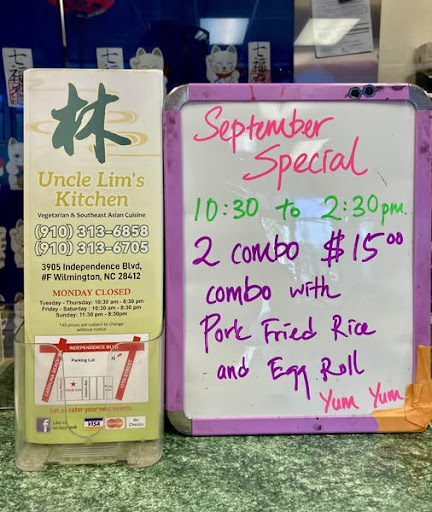 林
Uncle Lim's
Kitchen
Vegetarian & Southeast Asian Cuisine
(910) 313-6858
(910) 313-6705
3905 Independence Blvd,
#F Wilmington, NC 28412
MONDAY CLOSED
Tuesday - Thursday: 10:30 am - 8:30 pm
Friday - Saturday : 10:30 am - 8:30 pm
Sunday: 11:30 pm - 8:30pm
*All prices are subject to change
without notice
INDEPENDENCE BLVD
Parking Lot
Let us cater your next events
Like us
on facebook
VISA
MasterCard
No
Checks
September
Special
10:30 to 2:30pm.
2 combo $15.00
combo with
Pork Fried Rice
and Egg Roll
Yum Yum
七福